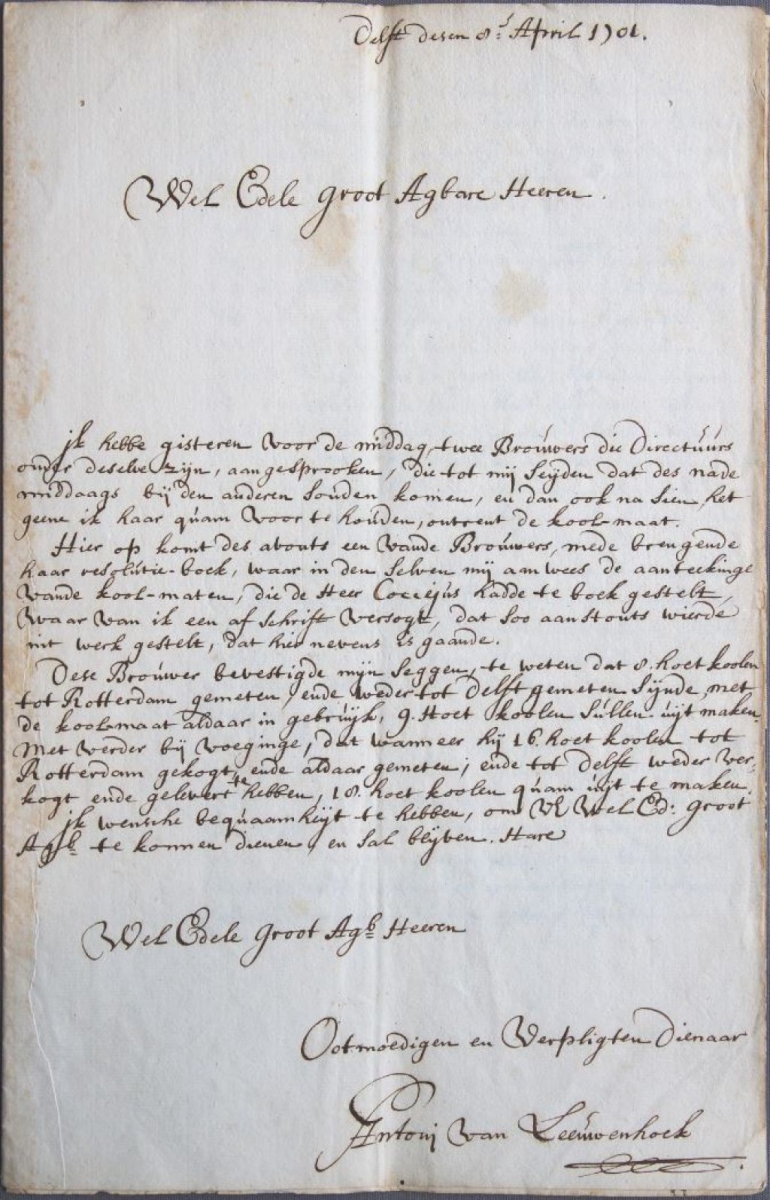 Delft desen 8e April 1701.
Wel Edele groot Agbare Heeren.
jk hebbe gisteren voor de middag, twee Brouwers die Directuurs
onder deselve zijn, aangesprooken, die tot mij seijden dat des nade
middaags bij den anderen souden komen, en dan ook na sien het
geene ik haar quam voor te houden, ontrent de kool-maat.
Hier op komt des avonts een vande Brouwers, mede brengende
haar resolutie-boek, waar in den selven mij aan wees de aanteekinge
vande kool-maten, die de Heer Coccejus hadde te boek gestelt,
waar van ik een af schrift versogt, dat soo aanstonts wierde
int werk gestelt, dat hier nevens is gaande.
Dese Brouwer bevestigde mijn seggen, te weten dat 8. hoet koolen
tot Rotterdam gemeten, ende weder tot Delft gemeten sijnde, met
de kool-maat aldaar in gebruijk, 9. Hoet koolen sullen uijt maken,
Met verder bij voeginge, dat wanneer hij 16. hoet koolen tot
Rotterdam gekogt, ende aldaar gemeten, ende tot Delft weder ver-
kogt ende gelevert te hebben, 18. hoet koolen quam uijt te maken.
jk wensche bequaamheijt te hebben, om UE Wel Ed: groot
Agb. te konnen dienen, en sal blijven. Hare
Wel Edele groot Agb. Heeren
Ootmoedigen en Verpligten Dienaar
Antonj van Leeuwenhoek